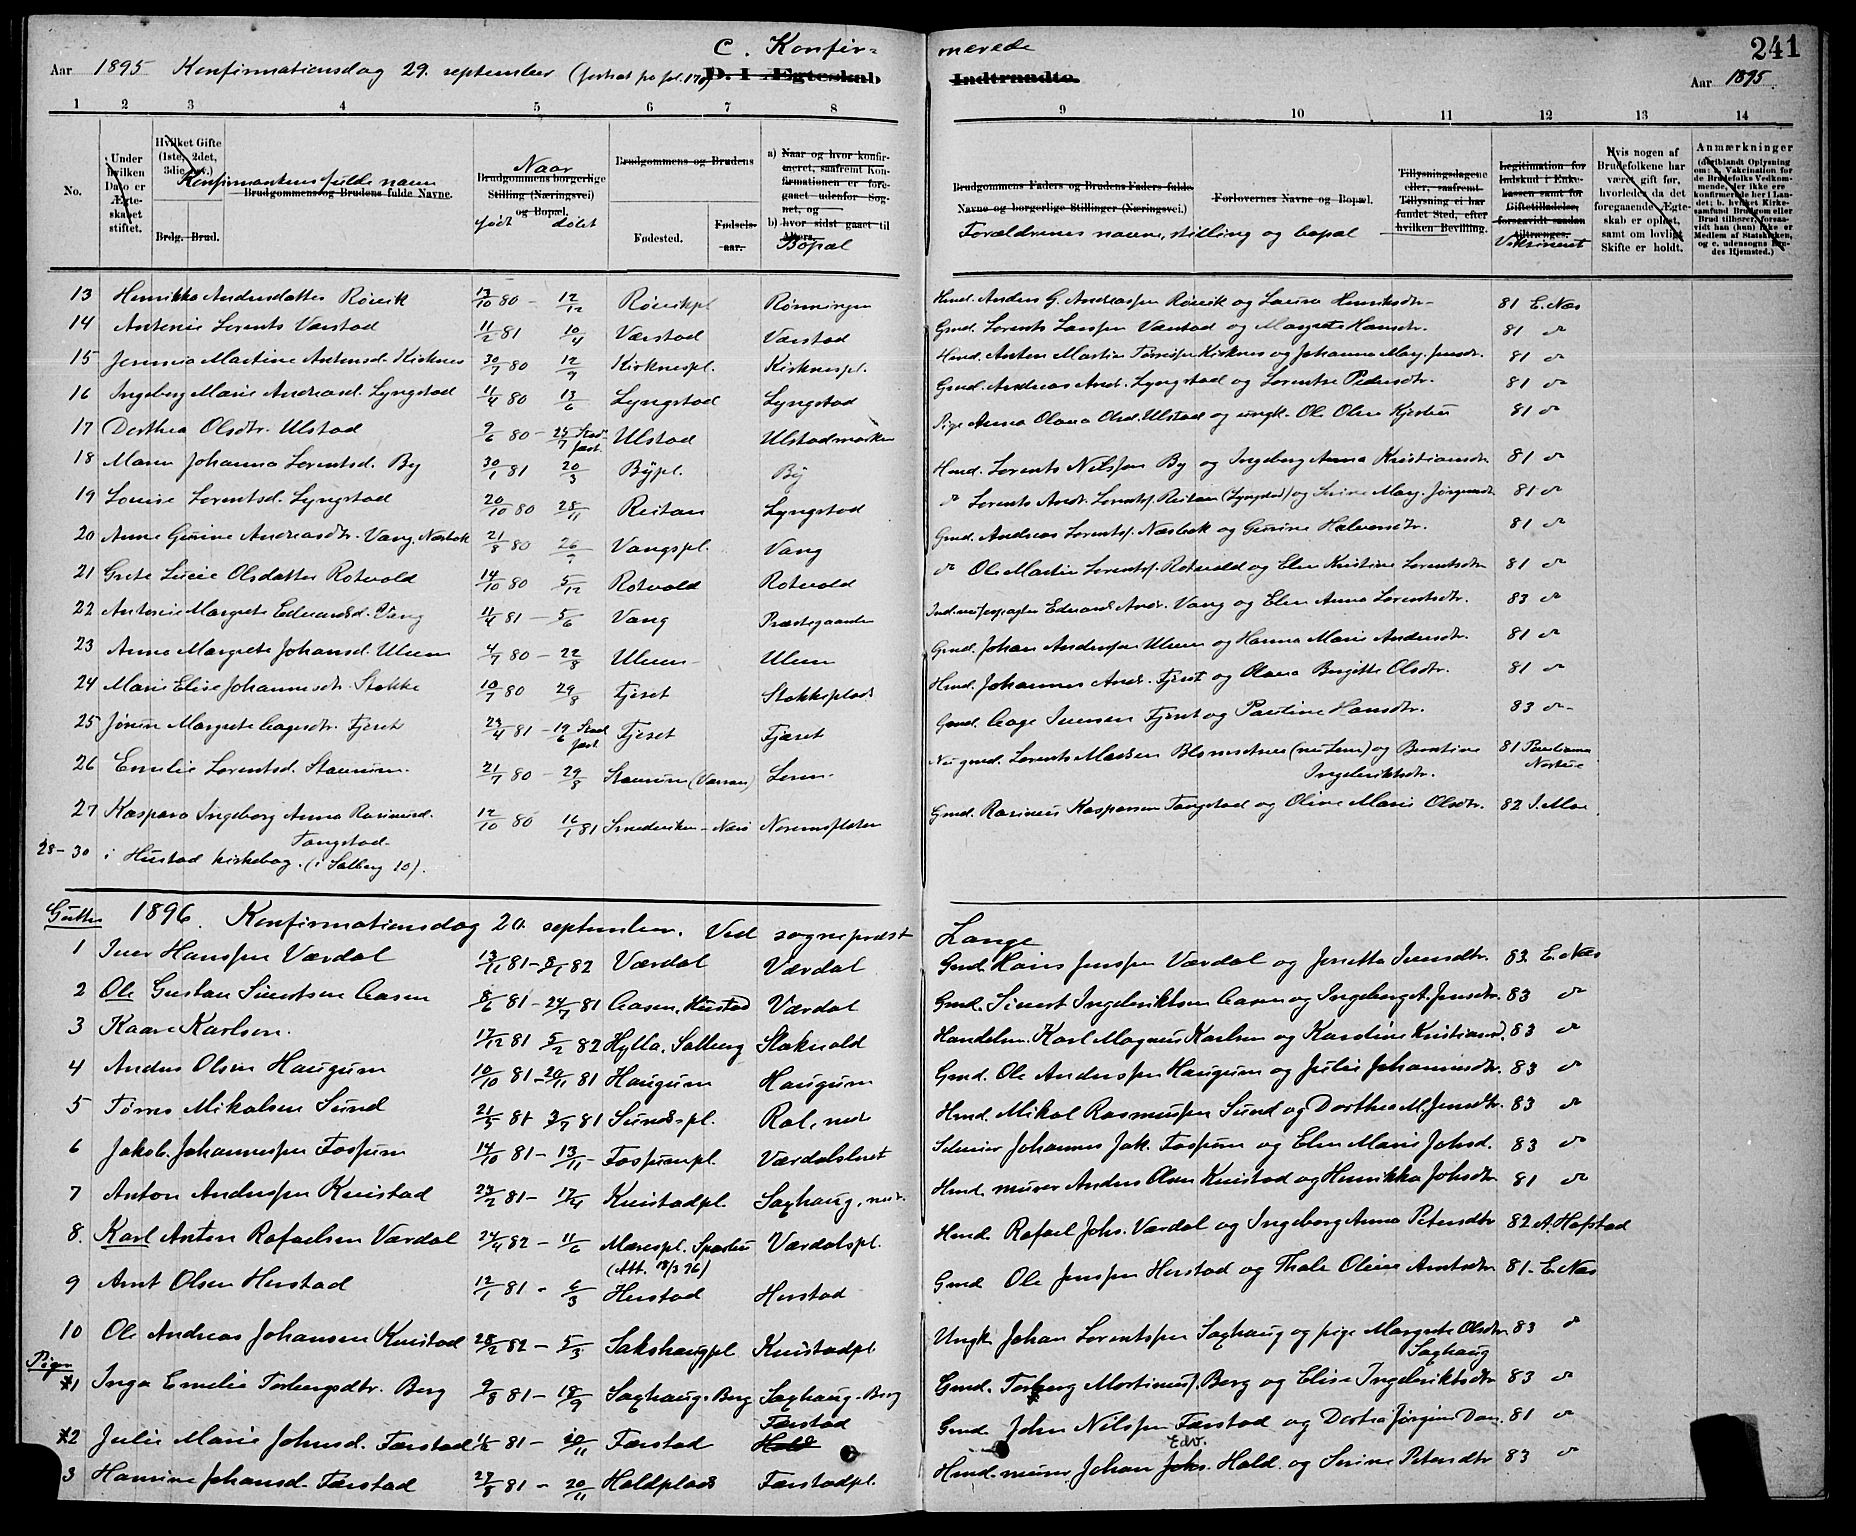 C. Konfir- merede 241
Aar 1895 Konfirmationsdag 29. september (fortsat fra fol. 170) D. I. Ægteskab Indtraadte. Aar 1895.
1 2 3 4 5 6 7 8 9 10 11 12 13 14
No. Under hvilken Dato er Ægteskabet stiftet. Hvilket Gifte (1ste, 2det, 3die osv.) Brdg. Brud. Konfirmantens fulde navn Brudgommens og Brudens fulde Navne. Naar Brudgommens borgerlige Stilling (Næringsvei) og Bopæl. født døbt Brudgommens og Brudens Fødested. Fødselsaar. a) Naar og hvor konfirmeret, saafremt Konfirmationen er foregaaet udenfor Sognet, og b) hvor sidst gaaet til Alters. Bopæl
Brudgommens Faders og Brudens Faders fulde Navne og borgerlige Stillinger (Næringsvei.) Forældrenes navne, stilling og bopæl Forlovernes Navne og Bopæl. Tillysningsdagene eller, saafremt Tillysning ei har fundet Sted, efter hvilken Bevilling. Legitimation for Indskud i Enkekassen samt for Giftetilladelse, forsaavidt saadan tiltrænges. Vaksineret Hvis nogen af Brudefolkene har været gift før, hvorledes da det foregaaende Ægteskab er opløst, samt om lovligt Skifte er holdt. Anmærkninger (deriblandt Oplysning om: a. Vakcination for de Brudefolks Vedkommende, der ikke ere konfirmerede her i Landet; b. hvilket Kirkesamfund Brudgom eller Brud tilhører, forsaavidt han (hun) ikke er Medlem af Statskirken, og c. udensogns Brudes Hjemsted.)
13 Henrikka Andersdatter Røvik 13/10 80 - 12/12 Røvikpl Rønningen Hmd. Anders G. Andreassen Røvik og Laura Henriksdtr. 81 E. Næs
14 Antonie Lorents Værstad 11/2 81 10/4 Værstad Værstad Gmd. Lorents Larssen Værstad og Margrete Hansdtr. 81 do
15 Jensine Martine Antonsd. Kirknes 30/7 80 12/9 Kirknespl. Kirknespl. Hmd. Anton Martin Kirknes og Johanna Marg. Jensdtr. 81 do
16 Ingeborg Marie Andreasd. Lyngstad 11/4 80 13/6 Lyngstad Lyngstad Gmd. Andreas And. Lyngstad og Lorentse Pedersdtr. 81 do
17 Dorthea Olsdtr. Ulstad 9/6 80 - 25/7 Stadfæst. Ulstad Ulstadmarken Pige Anna Olava Olsd. Ulstad og ungk. Ole Olsen 81 do
18 Maren Johanna Lorentsd. By 30/1 81 20/3 Bypl. By Hmd. Lorents Nilssen By og Ingeborg Anna Kristiansdtr 81 do
19 Louise Lorentsd. Lyngstad 20/10 80 28/11 Reitan Lyngstad do Lorents Andr. Lorentss. Reitan (Lyngstad) og Serine Marg. Jørgensdtr 81 do
20 Anne Gurine Andreasdtr. Vang. Næsbok 21/8 80 Vangspl. Vang Gmd. Andreas Lorents. Næsbok og Gurine Halvorsdtr. 81 do
21 Grete Lucie Olsdatter Rotvold 14/10 80 5/12 Rotvold Rotvold do Ole Martin Lorentss. Rotvold og Elen Kristine Lorentsdtr 81 do
22 Antonie Margrete Edvardsd. Vang 11/4 81 - 5/6 Vang Præstegaarden Edvard Andr. Vang og Elen Anna Lorentsdtr. 83 do
23 Anna Margrete Johansd. Uleen 4/7 80 - 22/8 Uleen Uleen Gmd. Johan Anderssen Uleen og Hanna Marie Andersdtr. 81 do
24 Marie Elise Johannesdtr. Stokke 10/7 80 29/8 Fjeset Stokkeplads Hmd. Johannes Andr. Fjeset og Olava Bergitte Olsdtr. 81 do
25 Jørine Margrete Aagesdtr. Fjeset 24/4 81 - 19/6 Stadfæst. Fjeset Fjæset Gmd. Aage Iversen Fjeset og Pauline Hansdtr. 83 do
26 Emelie Lorentsd. Staurum. 21/7 80 - 29/8 Staurum (Værran) Lorents Madsen og Berntine Ingebriktsdtr. 81 Pauliana
27 Kaspara Ingeborg Anna Rasmusd. Tangstad 12/10 80 16/1 81 Smedviken - Næss Gmd. Rasmus Kaspersen Tangstad og Oline Marie Olsdtr. 82 J. Moe
28-30 i Hustad kirkebog. (i Salberg 10).
Gutter 1896. Konfirmationsdag 20. september. Ved sogneprest Lange
1 Iver Hanssen Værdal 13/11 81 - 8/1 82 Værdal Værdal Gmd. Hans Jenssen Værdal og Jonetta Iversdtr. 83 E. Næs
2 Ole Gustav Sivertsen Aasen 8/6 81 - 24/7 81 Aasen, Hustad Værdal Gmd. Sivert Ingebriktsen Aasen og Ingeborg A. Jensdtr. 83 do
3 Kaare Karlsen. 17/12 81 5/2 82 Hylla, Salberg Stokvold Handelsm. Karl Magnus Karlsen og Karoline Kristiansd. 83 do
4 Anders Olsen Haugum 10/10 81 - 20/11 81 Haugum Haugum Gmd. Ole Anderssen Haugum og Julie Johannesdtr. 83 do
5 Tørres Mikalsen Sund 21/5 81 3/7 81 Sundspl. Rol, nedr Hmd. Mikal Rasmussen Sund og Dorthea M. Jensdtr. 83 do
6 Jakob Johannessen Fossum 14/10 81 - 13/11 Fossumpl. Værdalsbret Johannes Jak. Fossum og Elen Marie Johsd. 83 do
7 Anton Anderssen Kvistad 24/2 81 - 17/4 Kvistadpl. Saghaug, nedr. Hmd. murer Anders Olsen Kvistad og Henrikka Johsdtr 81 do
8. Karl Anton Rafaelsen Værdal 24/4 82 - 11/6 Mærespl. Sparbu (Att. 18/3 96) Værdalspl. Hmd. Rafael Johs. Værdal og Ingeborg Anna Petersdtr 82 A. Hofstad
9 Arnt Olsen Herstad 12/1 81 - 6/3 Herstad Herstad Gmd Ole Jenssen Herstad og Thale Oline Arntsdtr 81 - E. Næs
10 Ole Andreas Johansen Kvistad 28/2 82 - 5/3 Sakshaugpl Kvistadpl Ungk. Johan Lorentssen Saghaug og pige Margrete Olsdtr Saghaug 83 do
Piger
1 Inga Emelie Torbergsdtr. Berg 9/8 81 - 18/9 Saghaug. Berg Saghaug. Berg Gmd. Torberg Mortinuss. Berg og Elise Ingebriktsdtr 83 do
2 Julie Marie Johnsd. Færstad 81 - 20/11 Færstad Færstad Hald Gmd. John Nilssen Færstad og Dortea Jørgine Dan. 81 do
3 Hansine Johansd. Færstad 27/8 81 - 20/11 Haldplads Færstadpl. Hmd. murer Johan Edv. Johs. Hald og Serine Petersdtr 83 do